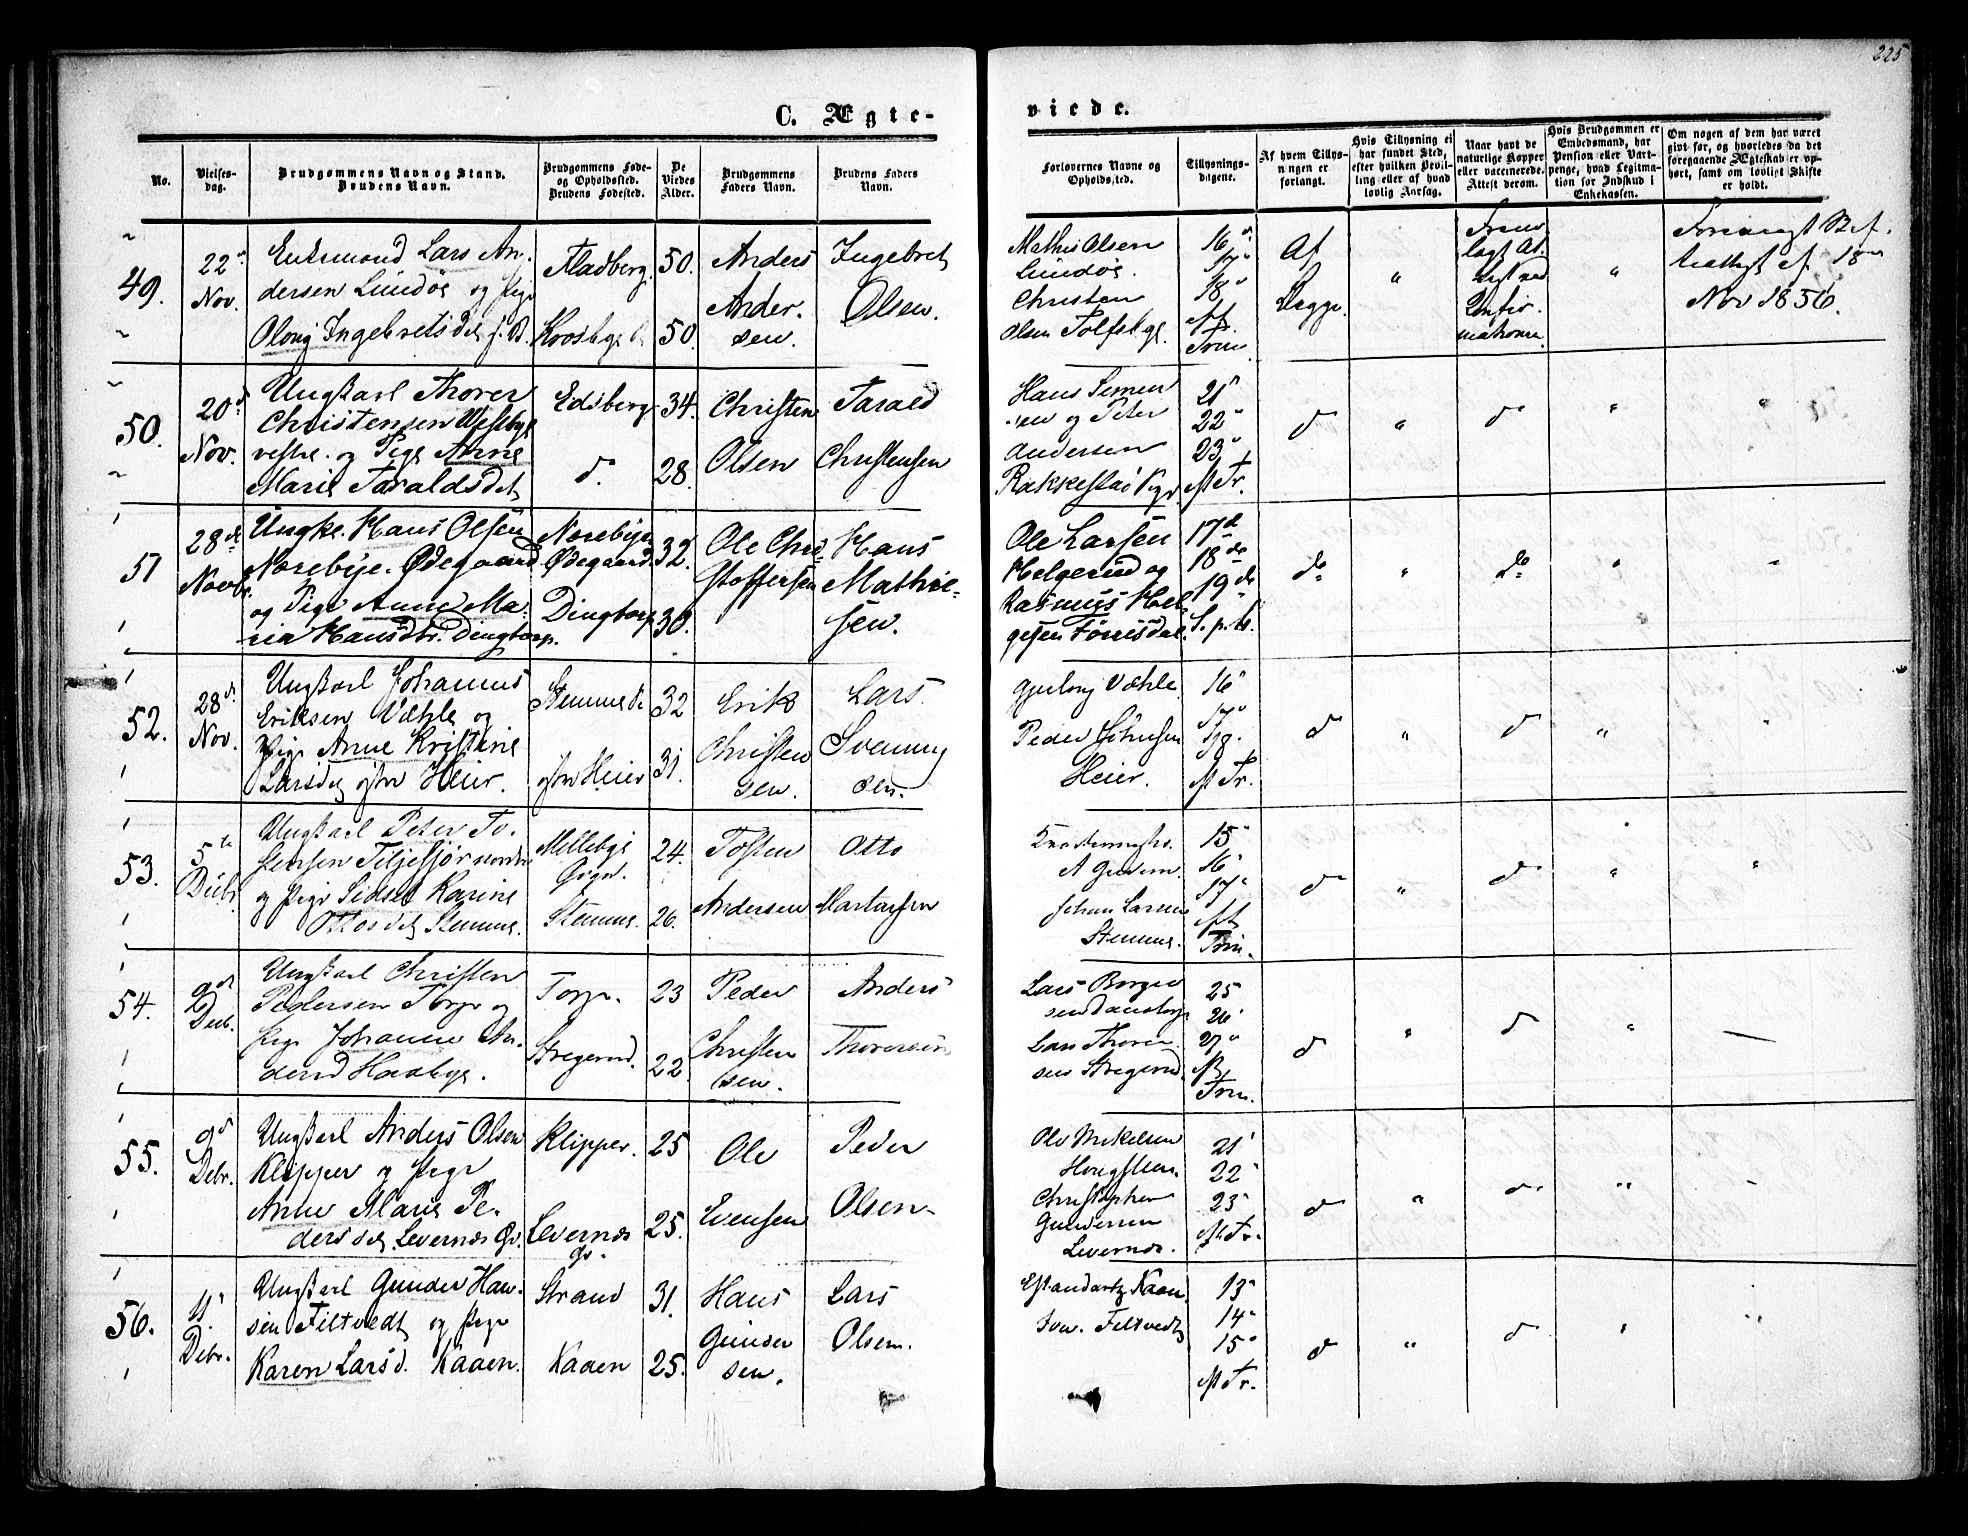 225
C. Ægte-
viede.
No.
Vielses-
dag.
Brudgommens Navn og Stand.
Brudens Navn.
Brudgommens Føde-
og Opholdssted.
Brudens Fødested.
De
Viedes
Alder.
Brudgommens
Faders Navn.
Brudens Faders
Navn.
Forlovernes Navne og
Opholdssted.
Tillysnings-
dagene.
Af hvem Tillys-
ningen er
forlangt.
Hvis Tillysning ei
har fundet Sted,
efter hvilken Bevil-
ling eller af hvad
lovlig Aarsag.
Naar havt de
naturlige Kopper
eller vaccinerede.
Attest derom.
Hvis Brudgommen er
Embedsmand, har
Pension eller Vart-
penge, hvad Legitima-
tion for Indskud i
Enkekassen.
Om nogen af dem har været
gift før, og hvorledes da det
foregaaende Ægteskab er op-
hørt, samt om lovligt Skifte
er holdt.
49.
22
Nov.
Enkemand Lars An-
dersen Lundös og Pige
Olovig Ingebretsdet
Fladberg.
50.
50.
Anders
Ander-
sen.
Ingebret
Olsen.
Mathis Olsen
Lundös.
Christen
Olsen
16
17
18
Af
Begge
Nov 1856.
50.
20
Nov.
Ungkarl Thorer
Christensen Westbye
vestre. og Pige Anne
Marie Taraldsdet
Edsberg
d
34.
28.
Christen
Olsen
Tarald
Christensen
Hans Simen
sen og Peter
Andersen
Rakkestad
21
22
23
d
d
51
28de
Novbr
Ungke. Hans Olsen
Norebye. Ødegaard
og Pige Anne Ma-
ria Hansdtr. Dingtorp.
Norebye
Ødegaard
Dingtorp
32.
30.
Ole Chri-
stoffersen
Hans
Mathie-
sen.
Ole Larsen
Helgerud og
Rasmus Hel-
gesen
17de
18de
19de
do
do
52.
28
Nov.
Ungkarl Johannes
Eriksen Væhle og
Pige Anne Kristine
Larsdt østre Heier.
østre Heier
32
31.
Erik
Christen
sen.
Lars
Svenning
sen.
Væhle
Peder Johnsen
Heier.
16
17
18
d
d
53.
5te
Debr
Ungkarl Peter To-
stensen
og Pige Sidsel Karine
Ottosdet Stemme.
Mellebye
Stemme.
24.
26.
Tosten
Andersen
Otto
Martinsen
Johan Larsen
Stemme.
15
16
17
d
d
54.
9
Deb.
Ungkarl Christen
Pedersen Torpe og
Pige Johanne An-
dersd
Torpe.
Stregerud.
23
22
Peder
Christen
sen.
Anders
Thoresen
Lars Borger
sen
Lars Thorer
sen Stregerud
25
26
27
d
d
55.
9
Debr.
Ungkarl Anders Olsen
Klipper og Pige
Anne Marie Pe-
dersdet. Levernæs Gr.
Klipper.
Levernæs
Gr.
25
25.
Ole
Evensen
Peder
Olsen
Ole Mikelsen
Christopher
Gundersen
Levernæs.
21
22
23
d
d
56.
11
Debr.
Ungkarl Gunder Han-
sen Feltvedt og Pige
Karen Larsd. Kaaen.
Strand
Kaaen
31.
25.
Hans
Gunder
sen.
Lars
Olsen.
Kaaen
Feltvedt
13
14
15
d
d